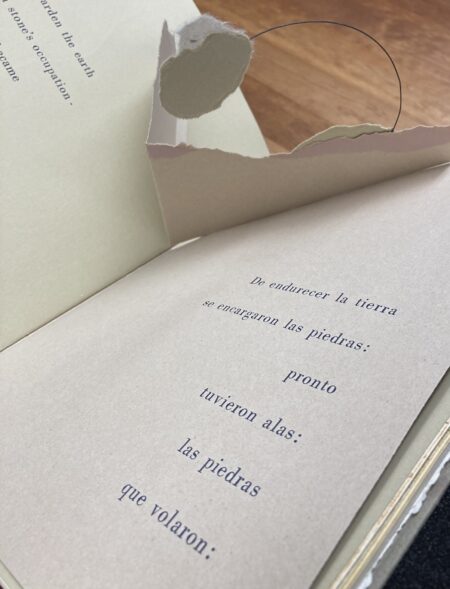 arden the earth
stone's occupation.
became
De endurecer la tierra
se encargaron las piedras:
pronto
tuvieron alas:
las piedras
que volaron: